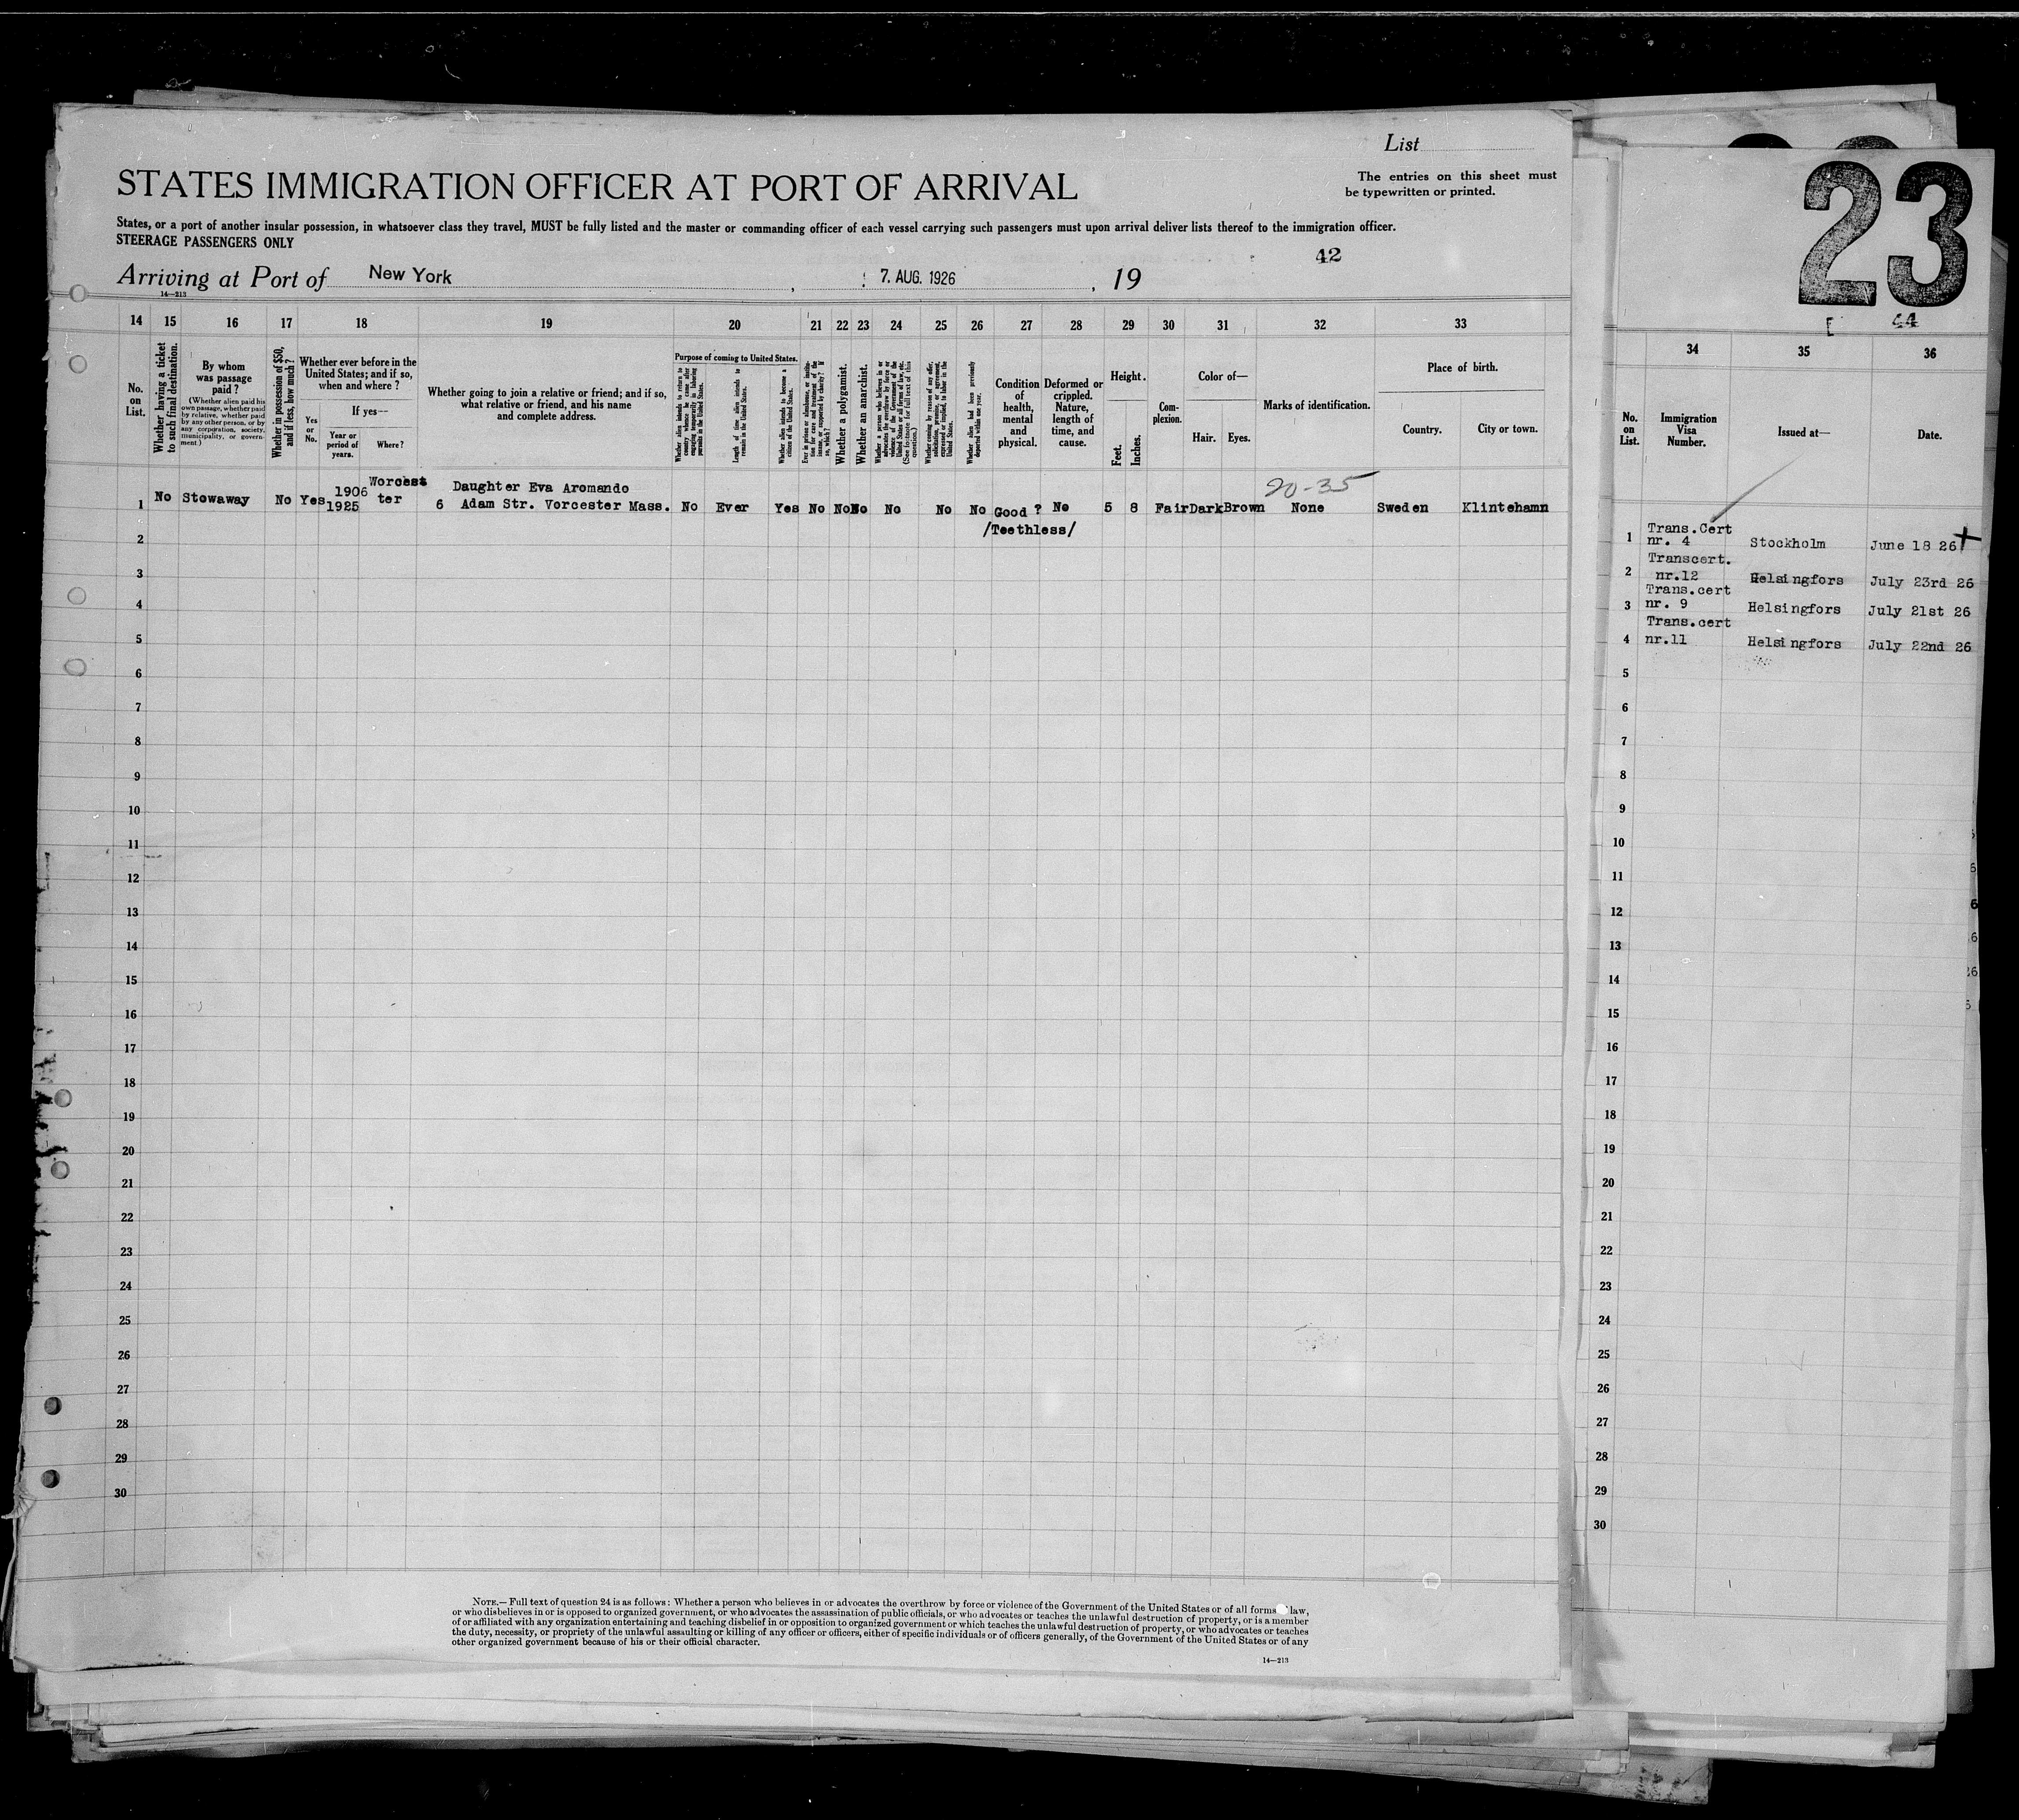 List
STATES IMMIGRATION OFFICER AT PORT OF ARRIVAL
The entries on this sheet must
be typewritten or printed.
States, or a port of another insular possession, in whatsoever class they travel, MUST be fully listed and the master or commanding officer of each vessel carrying such passengers must upon arrival deliver lists thereof to the immigration officer.
STEERAGE PASSENGERS ONLY
42
Arriving at Port of New York , 7. AUG. 1926 , 19
14—213
14 15 16 17 18 19 20 21 22 23 24 25 26 27 28 29 30 31 32 33
No. on List.
Whether having a ticket to such final destination.
By whom was passage paid?
(Whether alien paid his own passage, whether paid by relative, whether paid by any other person, or by any corporation, society, municipality, or government.)
Whether in possession of $50, and if less, how much?
Whether ever before in the United States; and if so, when and where?
Yes or No.
If yes—
Year or period of years.
Where?
Whether going to join a relative or friend; and if so, what relative or friend, and his name and complete address.
Purpose of coming to United States.
Whether alien intends to return to country whence he came after engaging temporarily in laboring pursuits in the United States.
Length of time alien intends to remain in the United States.
Whether alien intends to become a citizen of the United States.
Ever in prison or almshouse, or institution for care and treatment of the insane, or supported by charity? If so, which?
Whether a polygamist.
Whether an anarchist.
Whether coming by reason of any offer, solicitation, promise, or agreement, expressed or implied, to labor in the United States.
Whether alien had been previously deported within one year.
Condition of health, mental and physical.
Deformed or crippled. Nature, length of time, and cause.
Height.
Feet. Inches.
Complexion.
Color of—
Hair. Eyes.
Marks of identification.
Place of birth.
Country. City or town.
20-35
1906 Worcest Daughter Eva Aromando
1 No Stowaway No Yes 1925 ter 6 Adam Str. Vorcester Mass. No Ever Yes No No No No No No Good ? No 5 8 Fair Dark Brown None Sweden Klintehamn
/Teethless/
2
3
4
5
6
7
8
9
10
11
12
13
14
15
16
17
18
19
20
21
22
23
24
25
26
27
28
29
30
NOTE.—Full text of question 24 is as follows: Whether a person who believes in or advocates the overthrow by force or violence of the Government of the United States or of all forms law,
or who disbelieves in or is opposed to organized government, or who advocates the assassination of public officials, or who advocates or teaches the unlawful destruction of property, or is a member
of or affiliated with any organization entertaining and teaching disbelief in or opposition to organized government or which teaches the unlawful destruction of property, or who advocates or teaches
the duty, necessity, or propriety of the unlawful assaulting or killing of any officer or officers, either of specific individuals or of officers generally, of the Government of the United States or of any
other organized government because of his or their official character.
14—213
23
44
34 35 36
No. on List.
Immigration Visa Number.
Issued at—
Date.
Trans.Cert
1 nr. 4 Stockholm June 18 26
Transcert.
2 nr.12 Helsingfors July 23rd 26
Trans.cert
3 nr. 9 Helsingfors July 21st 26
Trans.cert
4 nr.11 Helsingfors July 22nd 26
5
6
7
8
9
10
11
12
13
14
15
16
17
18
19
20
21
22
23
24
25
26
27
28
29
30